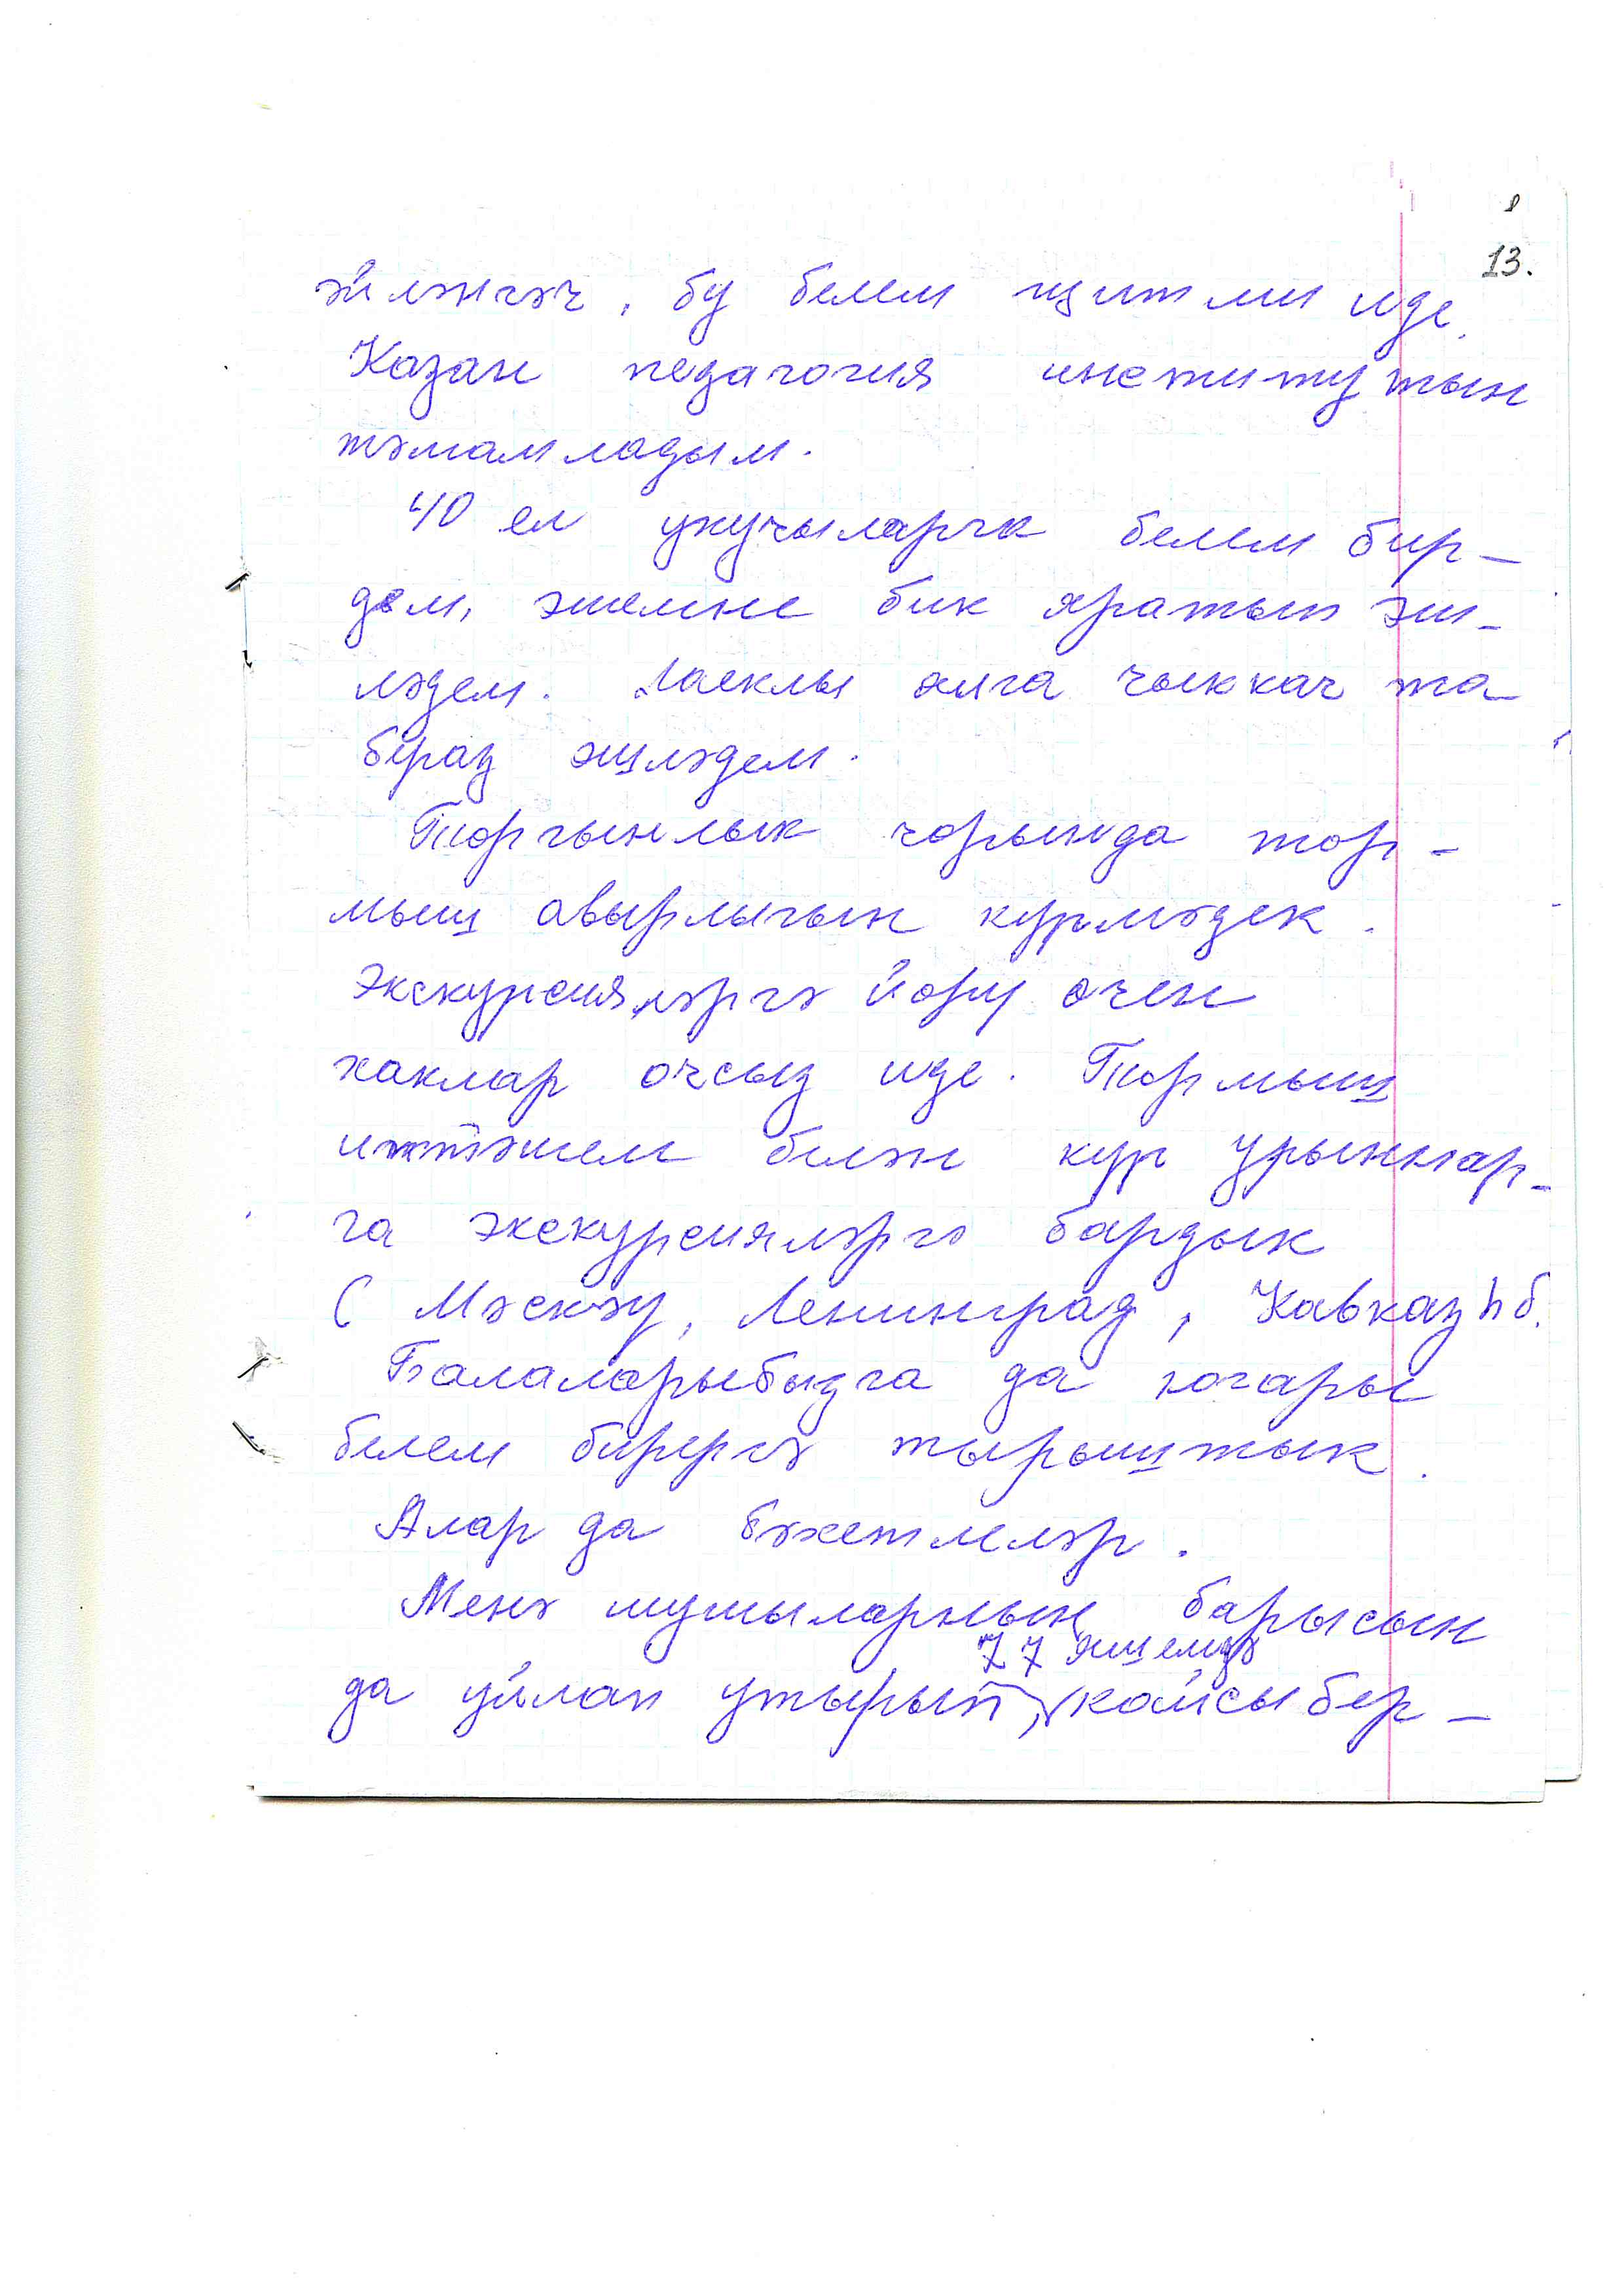 13.
әйләнгәч, бу белем җитми иде.
Казан педагогия институтын
тәмамладым.
40 ел укучыларга белем бир-
дем, эшемне бик яратып эш-
ләдем. Лаеклы ялга чыккач та
бераз эшләдем.
Торгынлык чорында тор-
мыш авырлыгын күрмәдек.
Экскурсияләргә йөрү өчен
хаклар очсыз иде. Тормыш
иптәшем белән күп урыннар-
га экскурсияләргә бардык
( Мәскәү, Ленинград, Кавказ һ б.
Балаларыбызга да югары
белем бирергә тырыштык.
Алар да бәхетлеләр.
Менә шушыларның барысын
77 яшемдә
да уйлап утырып, кайсыбер-